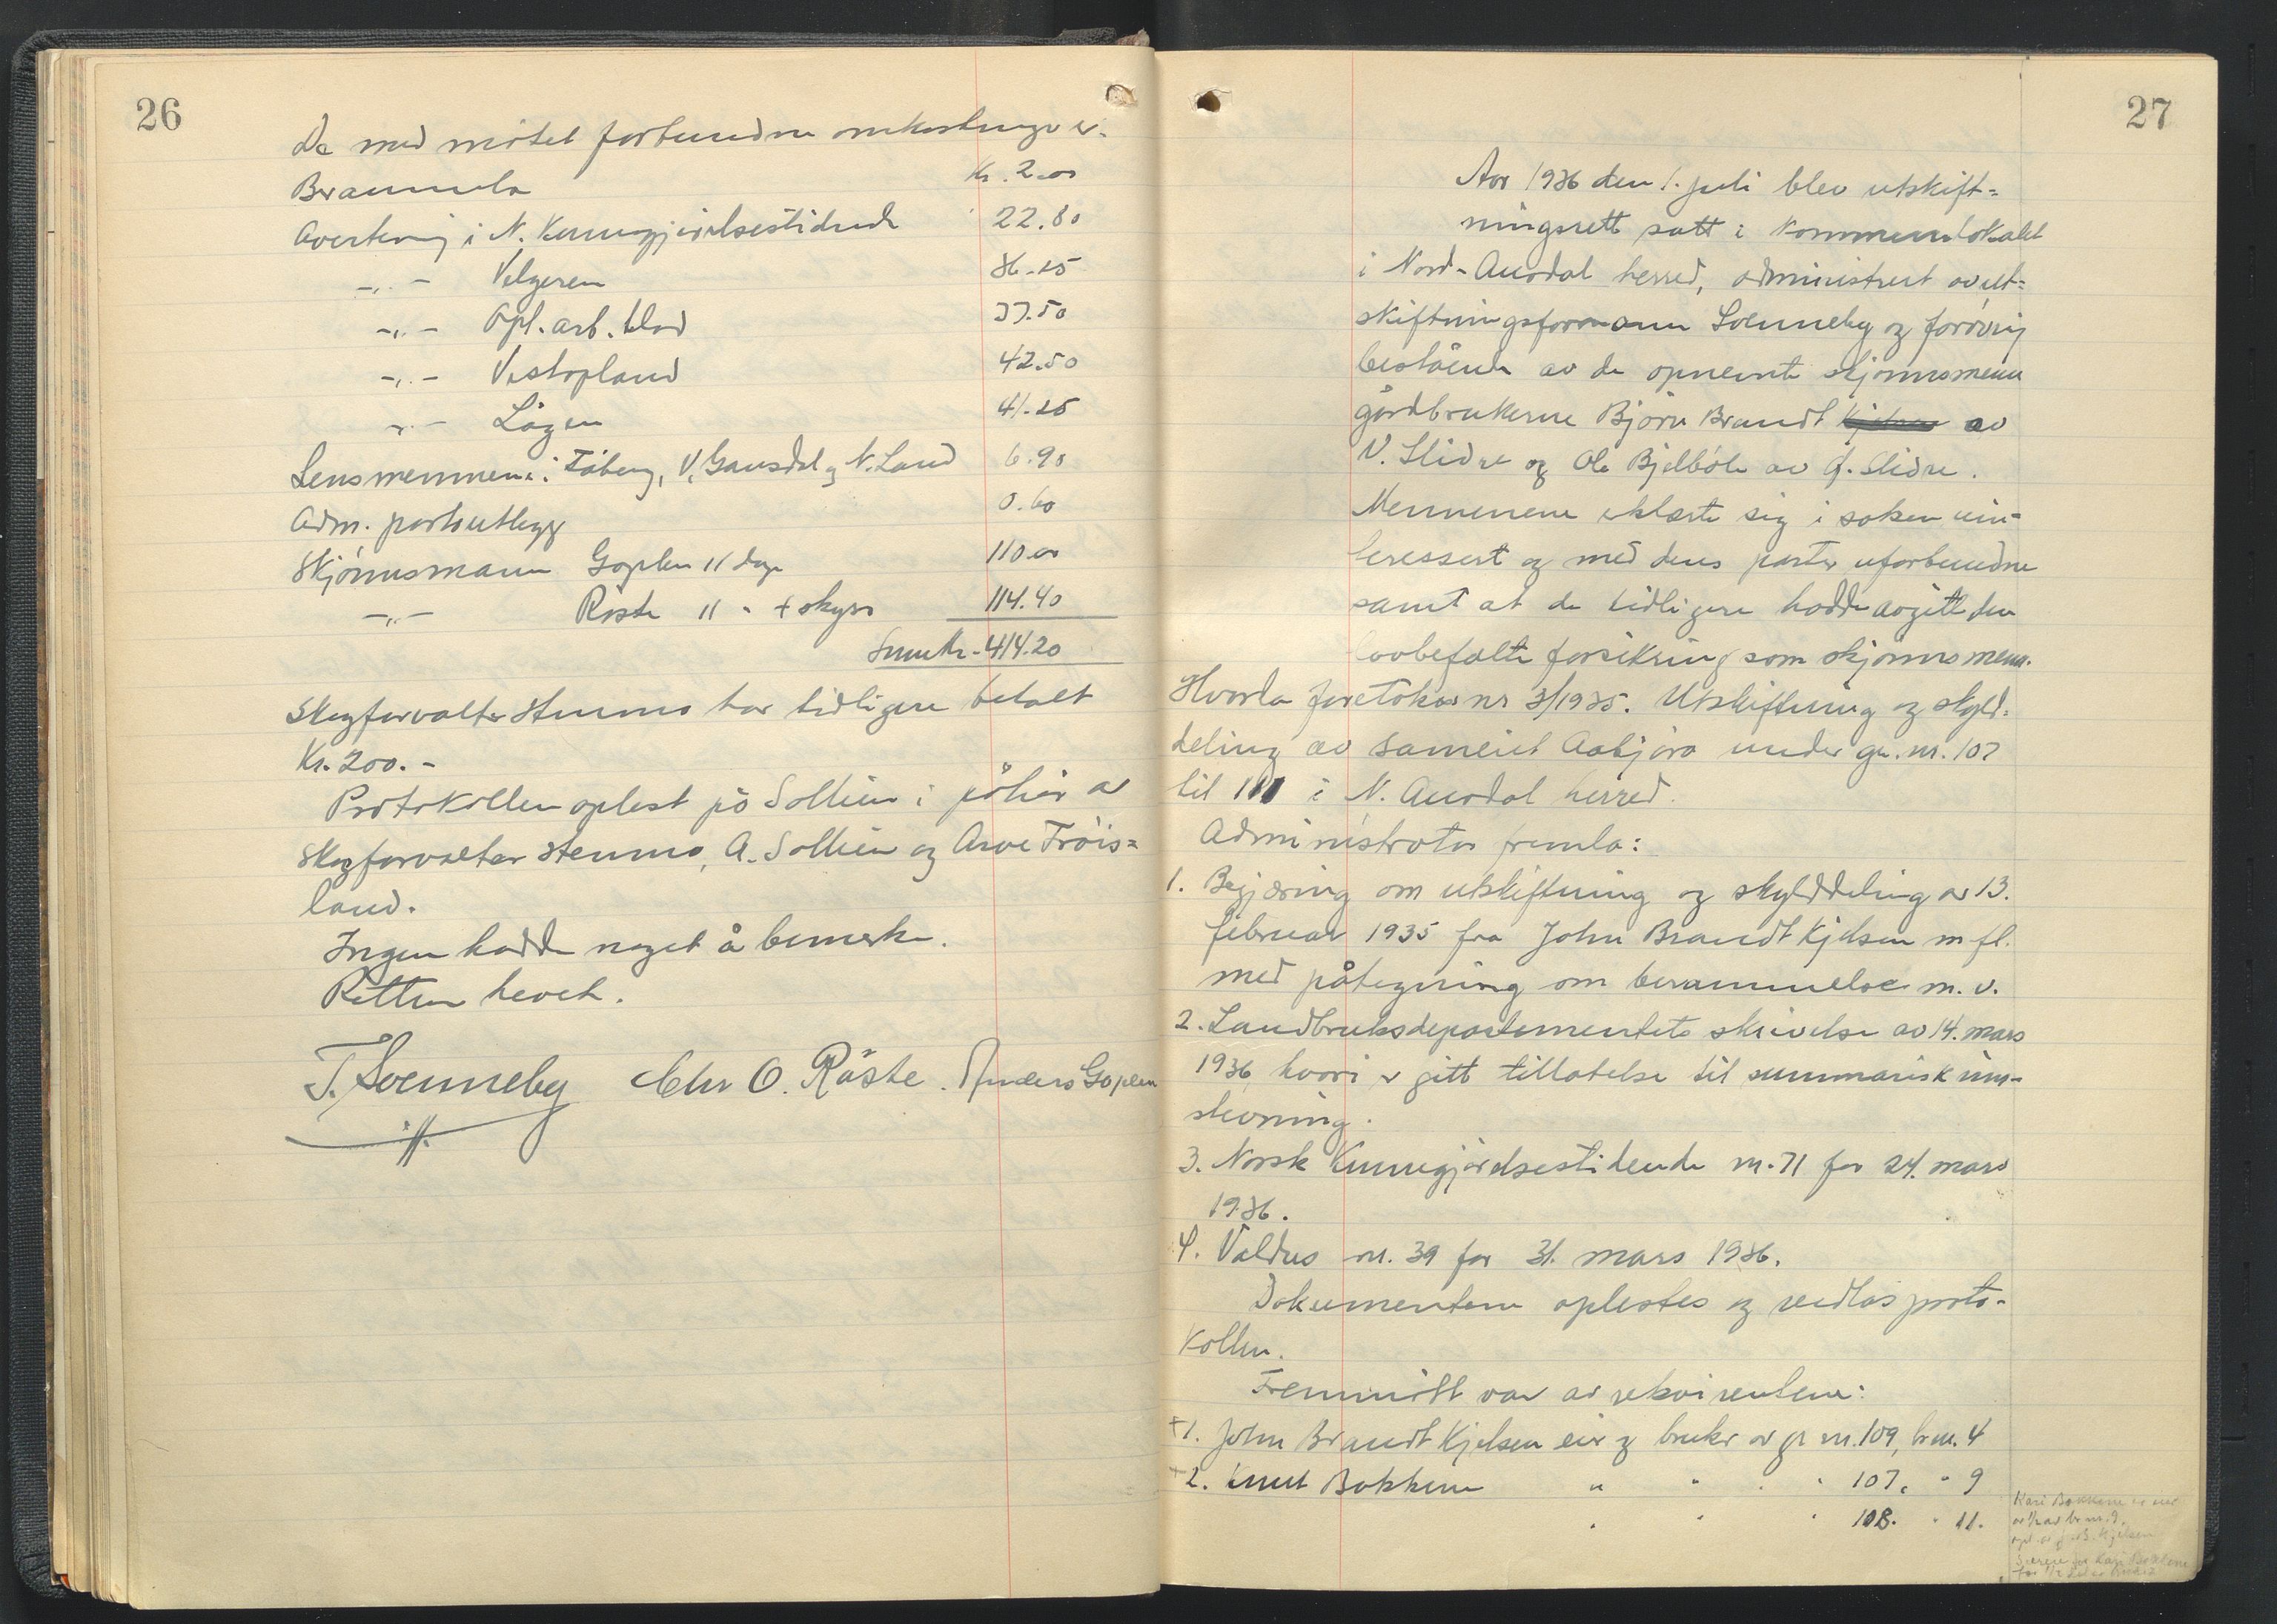 26
De med mötet forbundne omkostninger er.
Berammelse Kr. 2.00
Avertering i N. Kunngjørelsestidende 22.80
-"- Velgeren 36.25
-"- Opl. arb. blad 37.50
-"- Vestopland 42.50
-"- Lågen 41.25
Lensmennene i Fåberg, V. Gausdal og N. Land 6.90
Adm. portoutlegg 0.60
Skjönnsmann Goplen 11 dage 110.00
-"- Röste 11 " + skyss 114.40
Sum Kr. 414.20
Skogforvalter Stenmo har tidligere betalt
Kr. 200.-
Protokollen oplest på Sollien i påhör av
skogforvalter Stenmo, A. Sollien og Arve Fröis=
land.
Ingen hadde noget å bemerke.
Retten hevet.
T. Svenneby Chr O. Röste. Anders Goplen
27
Aar 1936 den 1. juli blev utskift=
ningsrett satt i kommunelokalet
i Nord-Aurdal herred, administrert av ut=
skiftningsformann Svenneby og forövrig
bestående av de opnevnte skjönnsmenn
gårdbrukerne Björn Brandt av
V. Slidre og Ole Bjelböle av Ö. Slidre.
Mennenene erklærte sig i saken uin-
teressert og med dens parter uforbundne
samt at de tidligere hadde avgitt den
lovbefalte forsikring som skjönnsmenn.
Hvorda foretokes nr 3/1935. Utskiftning og skyld-
deling av sameiet Aabjöra under gr. nr. 107
til 111 i N. Aurdal herred.
Administrator fremla:
1. Begjæring om utskiftning og skylddeling av 13.
februar 1935 fra John Brandt Kjelsen m fl.
med påtegning om berammelse m. v.
2. Landbruksdepartementets skrivelse av 14. mars
1936 hvori er gitt tillatelse til summarisk inn-
stevning.
3. Norsk Kunngjørelsestidende nr. 71 for 24. mars
1936.
4. Valdres nr. 39 for 31. mars 1936.
Dokumentene oplestes og vedlas proto-
kollen.
Fremmött var av rekvirentene:
+1. John Brandt Kjelsen eier og bruker av gr nr. 109, br nr. 4
+2. Knut Bakkene " " " 107, " 9
" " " 108. " 11.
Kari Bakkene er eier